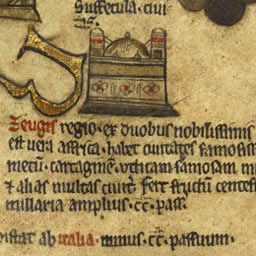 Suffecula. ciui
Zeugis regio. ex duobus nobilissimis
est uera affrica. habet ciuitates famosis
metū. cartaginē. uticam famosam
& alias multas fert fructū centes
miliaria amplius. c̄c̄. pass
distat ab italia. minus. c̄c̄. passuum.